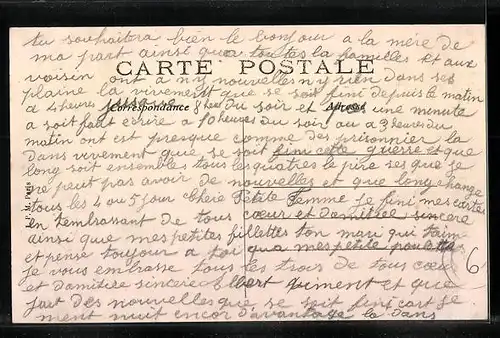 tu souhaitera bien le bonjour a la mère de
ma part ainsi qua toutes la familles et aux
CARTE POSTALE
voisin ont a ny nouvelles ny rien dans ses
plaine la vivement que se soit fini depuis te matin
a 4 heures jusqu 8 heur du soir et pas une minute
Correspondance
Adresse
a soit fart ecrire a 10 heures du soir au a 3 heures du
matin ont est presque comme des prisonnier la
dans vivement que se soit fini cette guerre et que
long soit ensemble tous les quatres le pire ses que je
ne peut pas avoir de nouvelles et que long change
tous les 4 ou 5 jour Chère Petite Femme je fini mes cartes
en tembrassant de tous cœur et Damitiee sincere
ainsi que mes petites fillettes ton mari qui taime
et pense toujour a toi qua mes petite poulettes
je vous embrasse tous les trois de tous cœur
6
et Damitiée sincere Albert et que
fart des nouvelles que se soit fini cart se
ment nuit encor d'avantage la dans
Paris